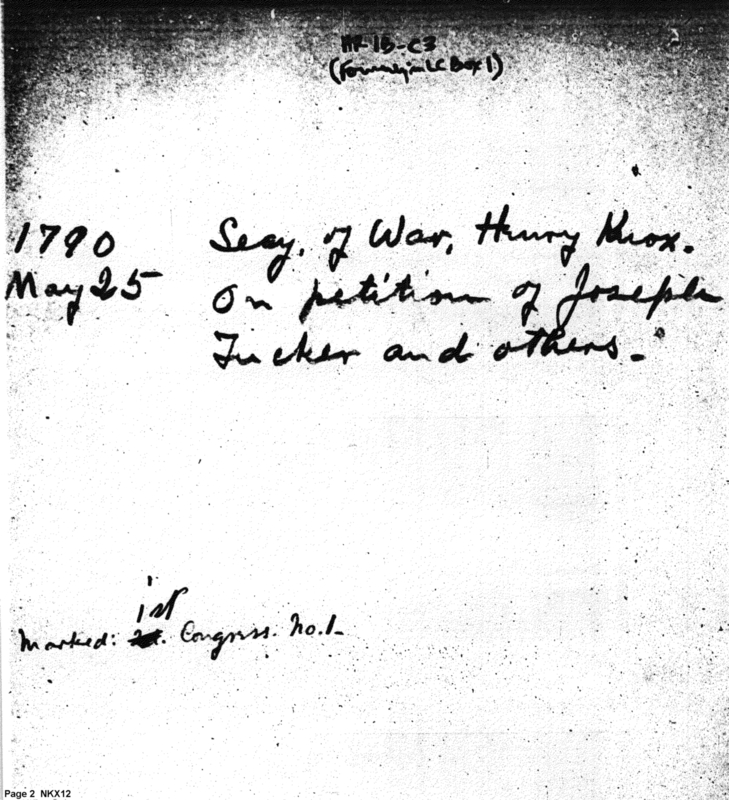 HR-1B-C3
(Formerly in LC Box 1)
1790 Secy. of War, Henry Knox.
May 25 On petition of Joseph
Tucker and others.
1st
Marked: Congress. No. 1
Page 2 NKX12